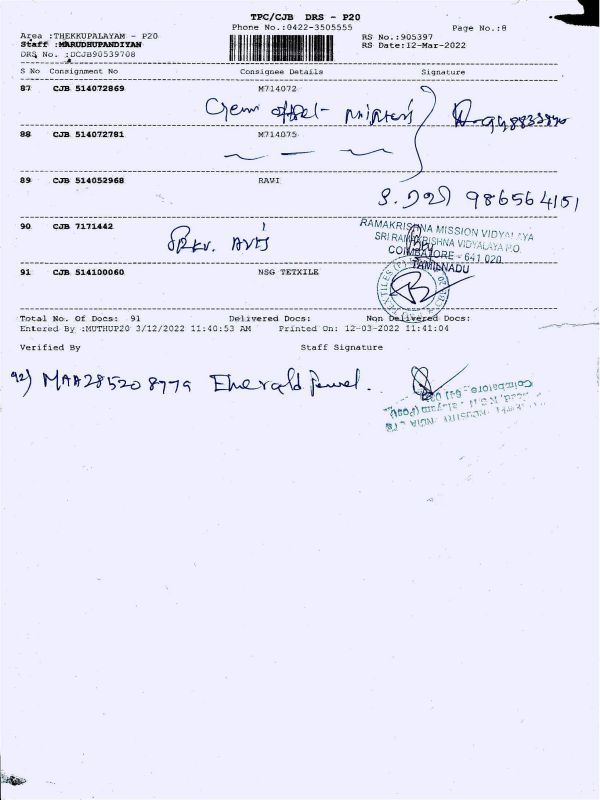 TPC/CJB DRS - P20
Phone No.:0422-3505555
Page No.:8
Area :THEKKUPALAYAM - P20
RS No.:905397
Staff :MARUDHUPANDIYAN
RS Date:12-Mar-2022
DRS No. :DCJB90539708
S No Consignment No Consignee Details Signature
87 CJB 514072869 M714072
88 CJB 514072781 M714075
89 CJB 514052968 RAVI
986564151
90 CJB 7171442
RAMAKRISHNA MISSION VIDYALAYA
SRI RAMAKRISHNA VIDYALAYA P.O.
COIMBATORE - 641 020
TAMILNADU
91 CJB 514100060 NSG TETXILE
Total No. Of Docs: 91 Delivered Docs: Non Delivered Docs:
Entered By :MUTHUP20 3/12/2022 11:40:53 AM Printed On: 12-03-2022 11:41:04
Verified By Staff Signature
92) MAA285208779 Emerald Jewel.